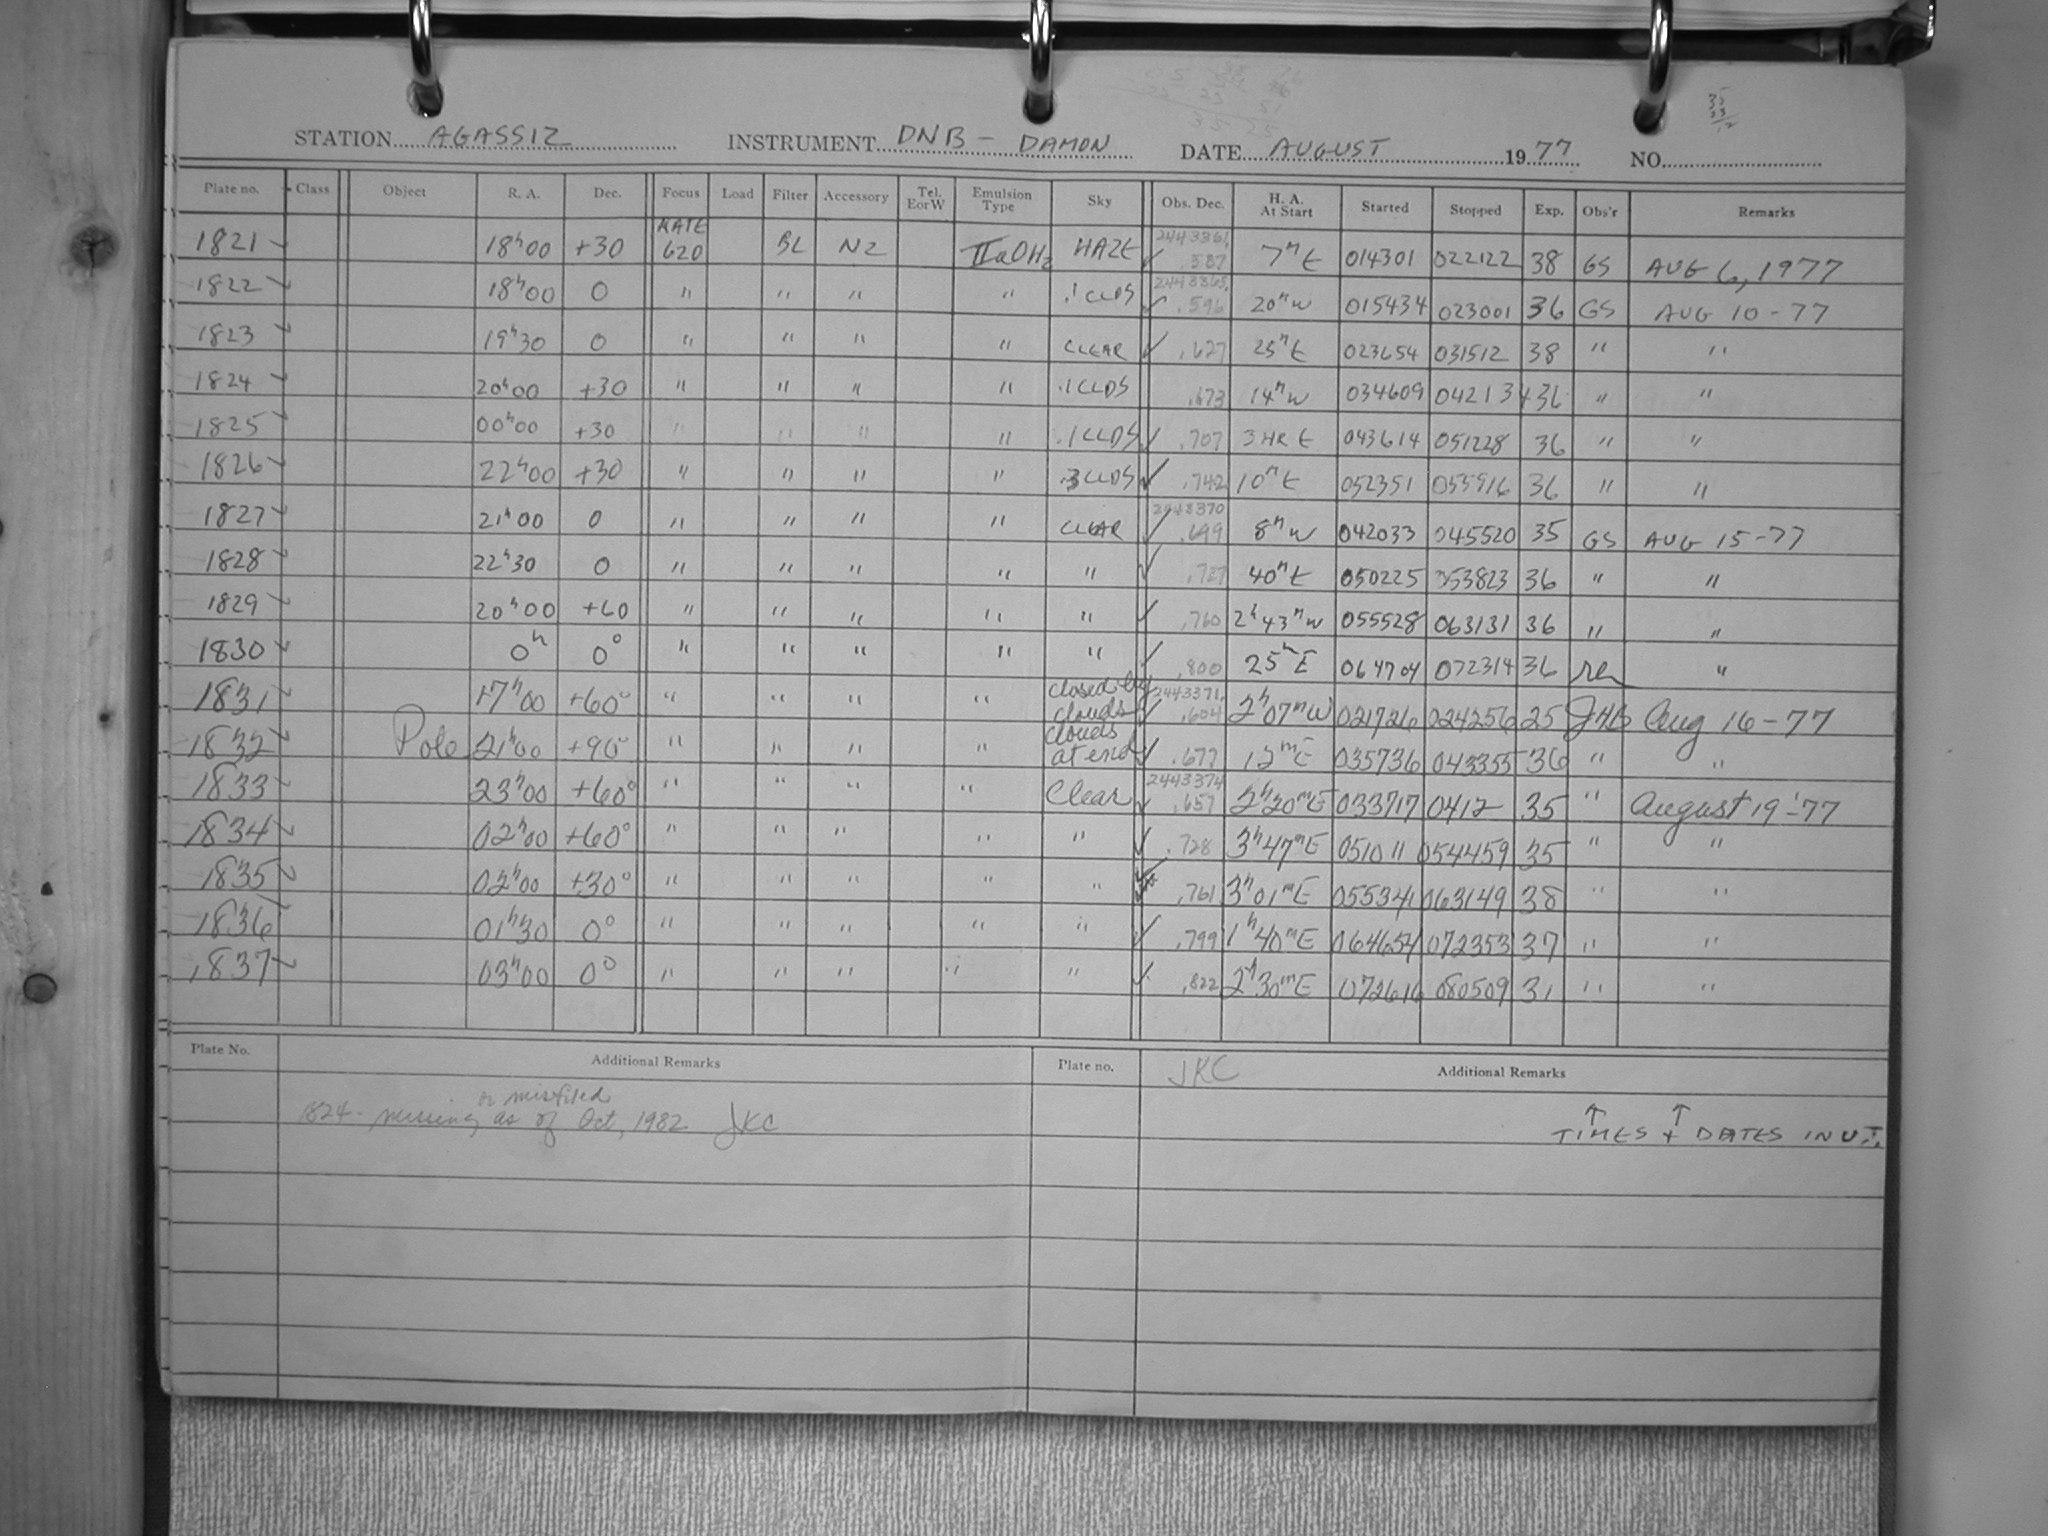 STATION AGASSIZ INSTRUMENT DNB - DAMON DATE AUGUST 1977 NO.
Plate no. Class Object R. A. Dec. Focus Load Filter Accessory Tel. EorW Emulsion Type Sky Obs. Dec. H. A. At Start Started Stopped Exp. Obs'r Remarks
1821 18h00 +30 RATE 620 BL N2 IIaOH2 HAZE 2443361 .587 7m E 014301 022122 38 GS AUG 6, 1977
1822 18h00 0 " " " " .1 CLDS 2443365 .596 20m W 015434 023001 36 GS AUG 10-77
1823 19h30 0 " " " " CLEAR .627 25m E 023654 031512 38 " "
1824 20h00 +30 " " " " .1 CLDS .673 14m W 034609 042134 36 " "
1825 00h00 +30 " " " " .1 CLDS .707 3 HR E 043614 051228 36 " "
1826 22h00 +30 " " " " .3 CLDS .742 10m E 052351 055916 36 " "
1827 21h00 0 " " " " CLEAR 2443370 .699 8m W 042033 045520 35 GS AUG 15-77
1828 22h30 0 " " " " " .727 40m E 050225 053823 36 " "
1829 20h00 +60 " " " " " .760 2h43m W 055528 063131 36 " "
1830 0h 0° " " " " " .800 25m E 064704 072314 36 "
1831 17h00 +60° " " " " closed by clouds 2443371 .604 2h07m W 021726 024256 25 Aug 16-77
1832 Pole 21h00 +90° " " " " clouds at end .677 12m E 035736 043355 36 " "
1833 23h00 +60° " " " " Clear 2443374 .657 2h20m E 033717 0412 35 " August 19-'77
1834 02h00 +60° " " " " " .728 3h47m E 051011 054459 35 " "
1835 02h00 +30° " " " " " .761 3h01m E 055341 063149 38 " "
1836 01h30 0° " " " " " .799 1h40m E 064654 072353 37 " "
1837 03h00 0° " " " " " .822 2h30m E 072616 080509 31 " "
Plate No. Additional Remarks Plate no. JKC Additional Remarks
or misfiled
1824 - missing as of Oct, 1982 JKC
↑ ↑
TIMES + DATES IN U.T.